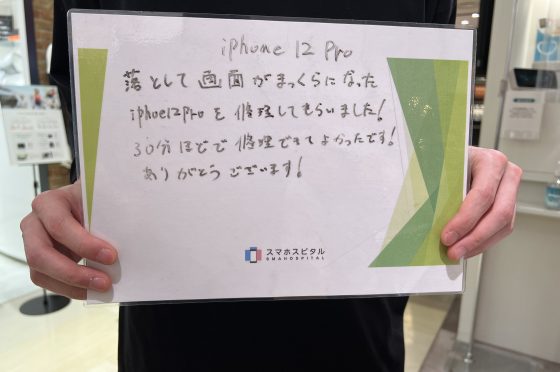 iphone 12 Pro
落として画面がまっくらになった
iphoe12Proを修理してもらいました!
30分ほどで修理できてよかったです!
ありがとうございます!
スマホスピタル
SMAHOSPITAL